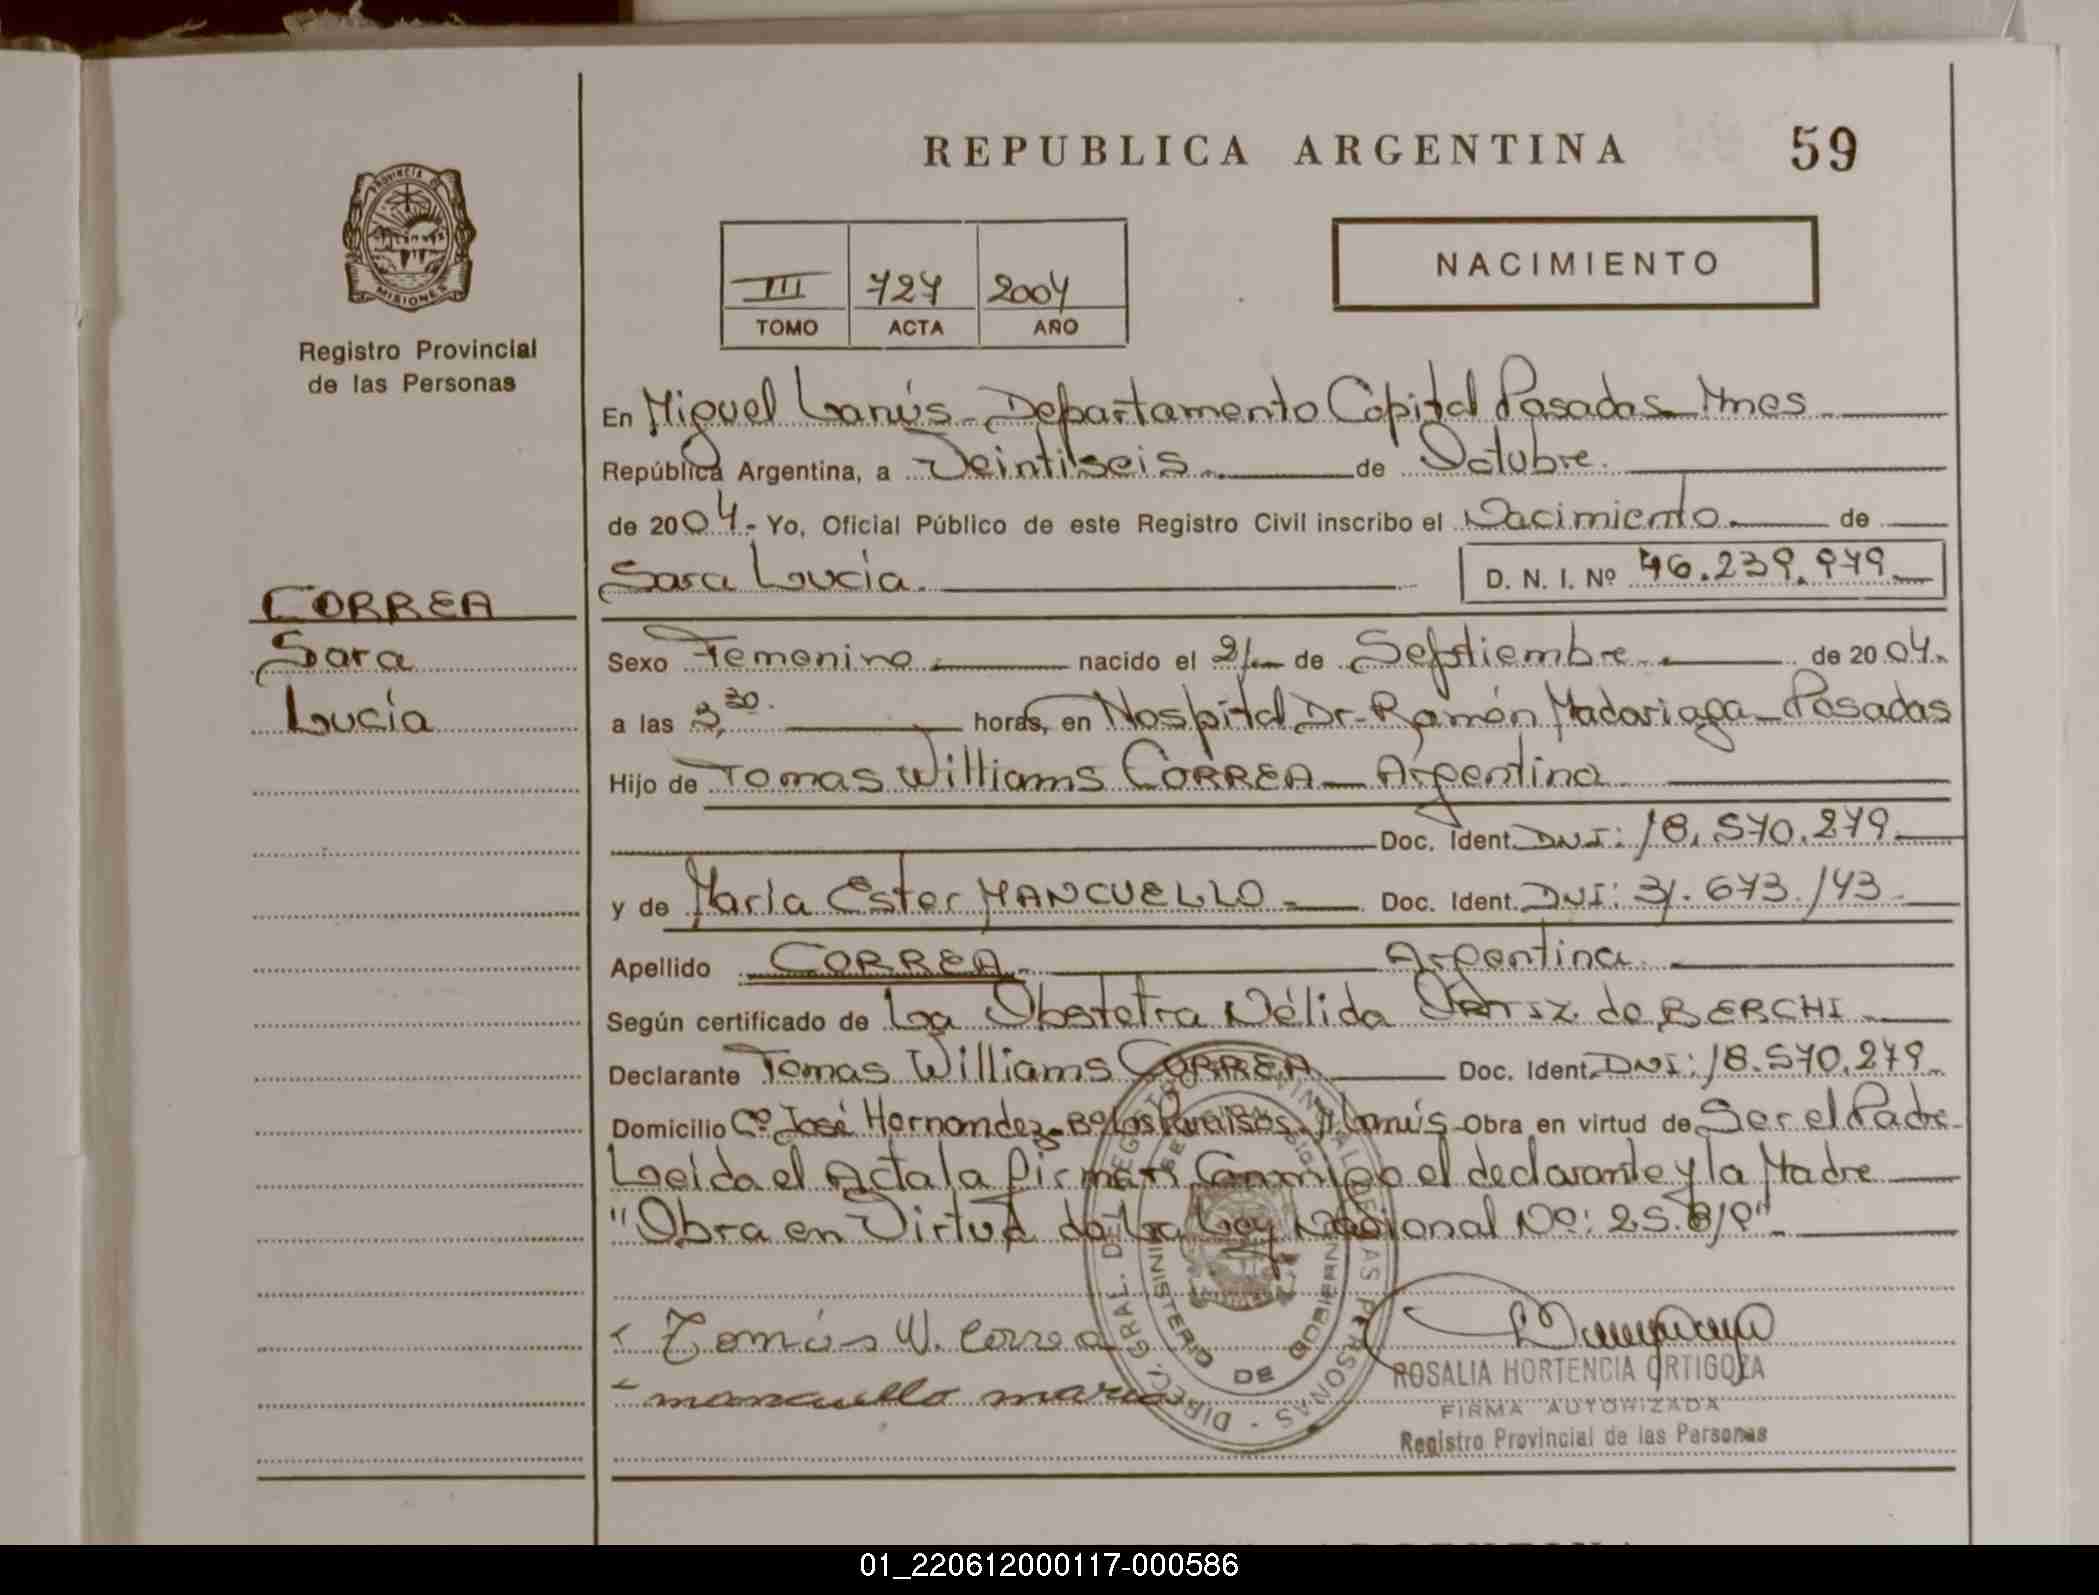 REPUBLICA ARGENTINA 59
PROVINCIA DE
MISIONES
Registro Provincial
de las Personas
III 727 2004
TOMO ACTA AÑO
NACIMIENTO
En Miguel Lanús - Departamento Capital Posadas Mnes
República Argentina, a Veintiseis de Octubre.
de 2004.- Yo, Oficial Público de este Registro Civil inscribo el Nacimiento de
Sara Lucía. D. N. I. Nº 46.239.979
CORREA
Sara
Lucía
Sexo Femenino nacido el 21 de Septiembre de 2004.
a las 3,30. horas, en Hospital Dr. Ramón Madariaga - Posadas
Hijo de Tomas Williams CORREA - Argentina
Doc. Ident. DNI: 18.570.279
y de María Ester MANCUELLO Doc. Ident. DNI: 31.673.143
Apellido CORREA Argentina.
Según certificado de La Obstetra Nélida de BERCHI
Declarante Tomas Williams CORREA Doc. Ident. DNI: 18.570.279
Domicilio Cº José Hernandez - Bº Los Paraisos M. Lanús - Obra en virtud de Ser el Padre
Leida el Acta la firman Conmigo el declarante y la Madre
"Obra en Virtud de La Ley Nacional Nº: 25.819"
DIREC. GRAL. DEL REGISTRO PROVINCIAL DE LAS PERSONAS
MINISTERIO DE GOBIERNO
Tomás W. Correa
mancuello maria
ROSALIA HORTENCIA ORTIGOZA
FIRMA AUTORIZADA
Registro Provincial de las Personas
01_220612000117-000586